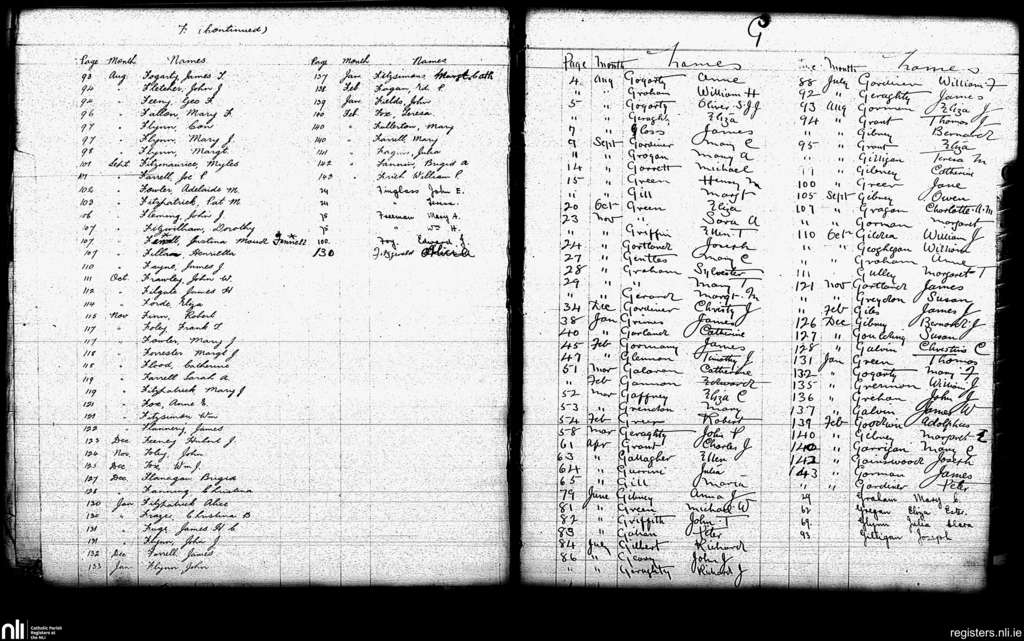 F. (Continued)
Page Month Names
93 Aug Fogarty, James F
94 " Fletcher, John J
94 " Feeny, Geo F
96 " Fallon, Mary F
97 " Flynn, Con
97 " Flynn, Mary J
98 " Flynn, Margt
101 Sept Fitzmaurice, Myles
101 " Farrell, Jos P
102 " Fowler, Adelaide M
103 " Fitzpatrick, Pat M
106 " Fleming, John J
107 " Fitzwilliam, Dorothy
107 " Justina Maud Fennell
107 " Henrietta
110 " Fayne, James J
111 Oct Frawley, John W
112 " Filgate James H
114 " Forde, Eliza
115 Nov Finn, Robert
117 " Foley, Frank T
117 " Fowler, Mary J
118 " Forrester Margt J
118 " Flood, Catherine
119 " Farrell Sarah A
119 " Fitzpatrick Mary J
121 " Fox, Anne E
121 " Fitzsimons Wm
122 " Flannery, James
123 Dec Feeney Hubert J
124 Nov Foley, John
125 Dec Fox, Wm J.
127 Dec Flanagan Brigid
128 " Fanning Christina
130 Jan Fitzpatrick Alice
132 " Christina B
131 " James H C
131 " Flynn, John J
132 Dec Farrell, James
133 Jan Flynn, John
Page Month Names
137 Jan Fitzsimons Margt Cath
138 Feb Fagan, Ed. P.
139 Jan Fields, John
140 Feb Fox, Teresa
140 " Fullerton, Mary
140 " Farrell, Mary
141 " Fagan, Julia
142 " Fannin, Brigid A
143 " Frith William P
24 Finglass John E.
24 "
78 Freeman Mary A.
78 " Wm H.
102 Foy, Edward J.
130 Fitzgerald
G
Page Month Names
4 Aug Gogarty Anne
" " Graham William H
5 " Gogarty Oliver S.J.J
" " Geraghty Eliza
7 " Goss James
9 Sept Gardiner Mary C
11 " Grogan Mary A
14 " Garrett Michael
15 " Green Henry M
" " Gill Margt
20 Oct Green Eliza
23 Nov " Sara A
" " Griffin Ellen T
24 " Gartland Joseph
27 " Gentles Mary C
28 " Graham Sylvester
29 " " Mary T
" " Gerard Margt M
34 Dec Gardiner Christy J
38 Jan Grimes James
40 " Garland Catherine
45 Feb Gormany James
47 " Glennon Timothy J
51 Mar Galavan Catherine
" Feb Gannon Edward
52 Mar Gaffney Eliza C
53 " Grendon Mary
54 Feb Green Robert
58 Mar Geraghty John P
61 Apr Grant Charles J
63 " Gallagher Ellen
64 " Guerrini Julia
65 " Gill Maria
79 June Gibney Anna J
81 " Green Michael W
82 " Griffith John T
83 " Gahan Peter
84 July Gilbert Richard
86 " Geary John J
" " Geraghty Richard J
Page Month Names
88 July Gardiner William F
92 " Geraghty James
93 Aug Gorman Eliza J
94 " Grant Thomas J
" " Gibney Bernard
95 " Grant Eliza
" " Gilligan Teresa M
" " Gibney Catherine
100 " Greer Jane
105 Sept Gibney Owen
107 " Grogan Charlotte A.M
" " Gorman Margaret
110 Oct Gildea William J
" " Geoghegan William
" " Graham Anne
111 " Gulley Margaret T
121 Nov Gartland James
" " Greydon Susan
" Feb Gibs James J
126 Dec Gibney Bernard J
127 " Goulding Susan
128 " Galvin Christina C
131 Jan Green Thomas
132 " Gogarty Mary F
135 " Grennon William J
136 " Grehan John J
137 " Galvin James W
139 Feb Goodwin Adolphus
140 " Gibney Margaret E
142 " Garrigan Mary C
142 " Gainswood Joseph
143 " Gorman James
" " Gardiner Peter
24 Graham Mary E
62 Eliza Ester.
69 Julia Clara
93 Gilligan Joseph
nli Catholic Parish
Registers at
the NLI
registers.nli.ie